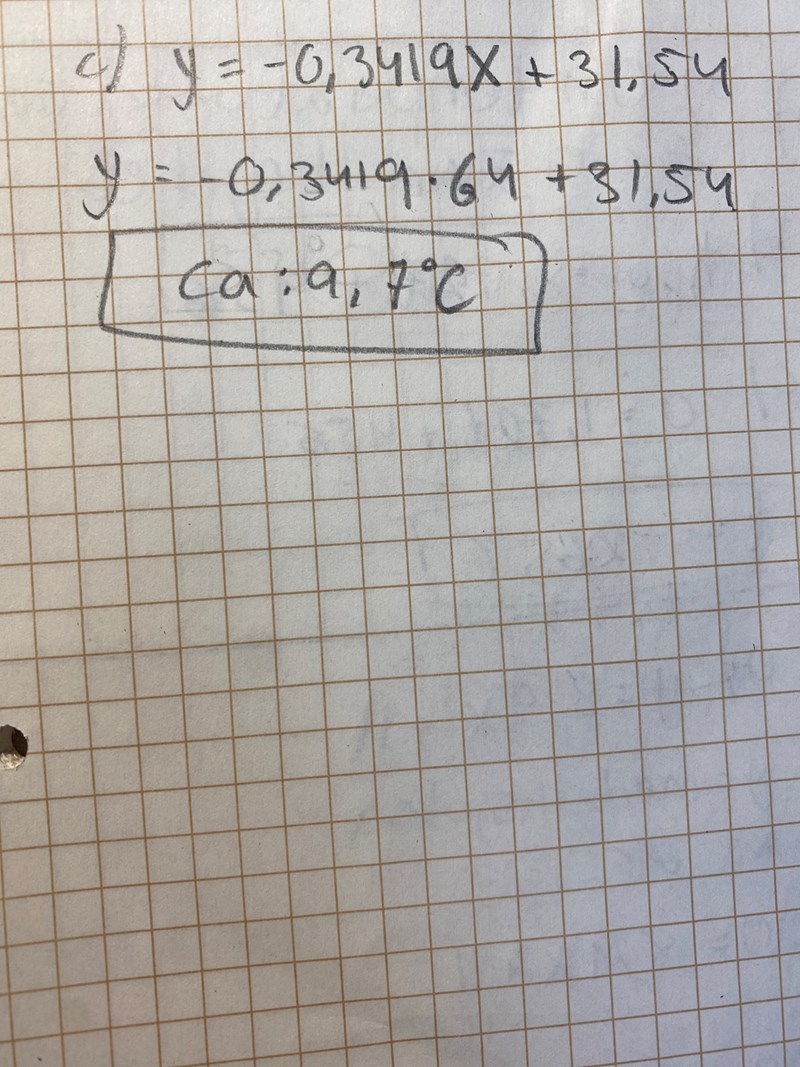 c) y = -0,3419x + 31,54
y = -0,3419·64 + 31,54
ca: 9,7°C